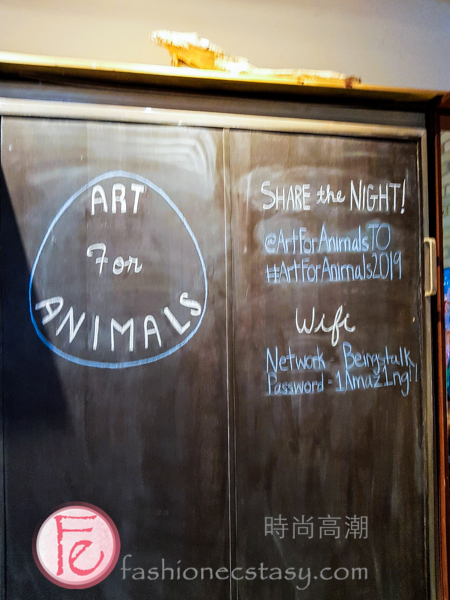 ART
For
ANIMALS
SHARE the NIGHT!
@ArtForAnimalsTO
#ArtForAnimals2019
Wifi
Network - Beingstalk
Password - 1Amaz1ng!7
Fe
時尚高潮
fashionecstasy.com